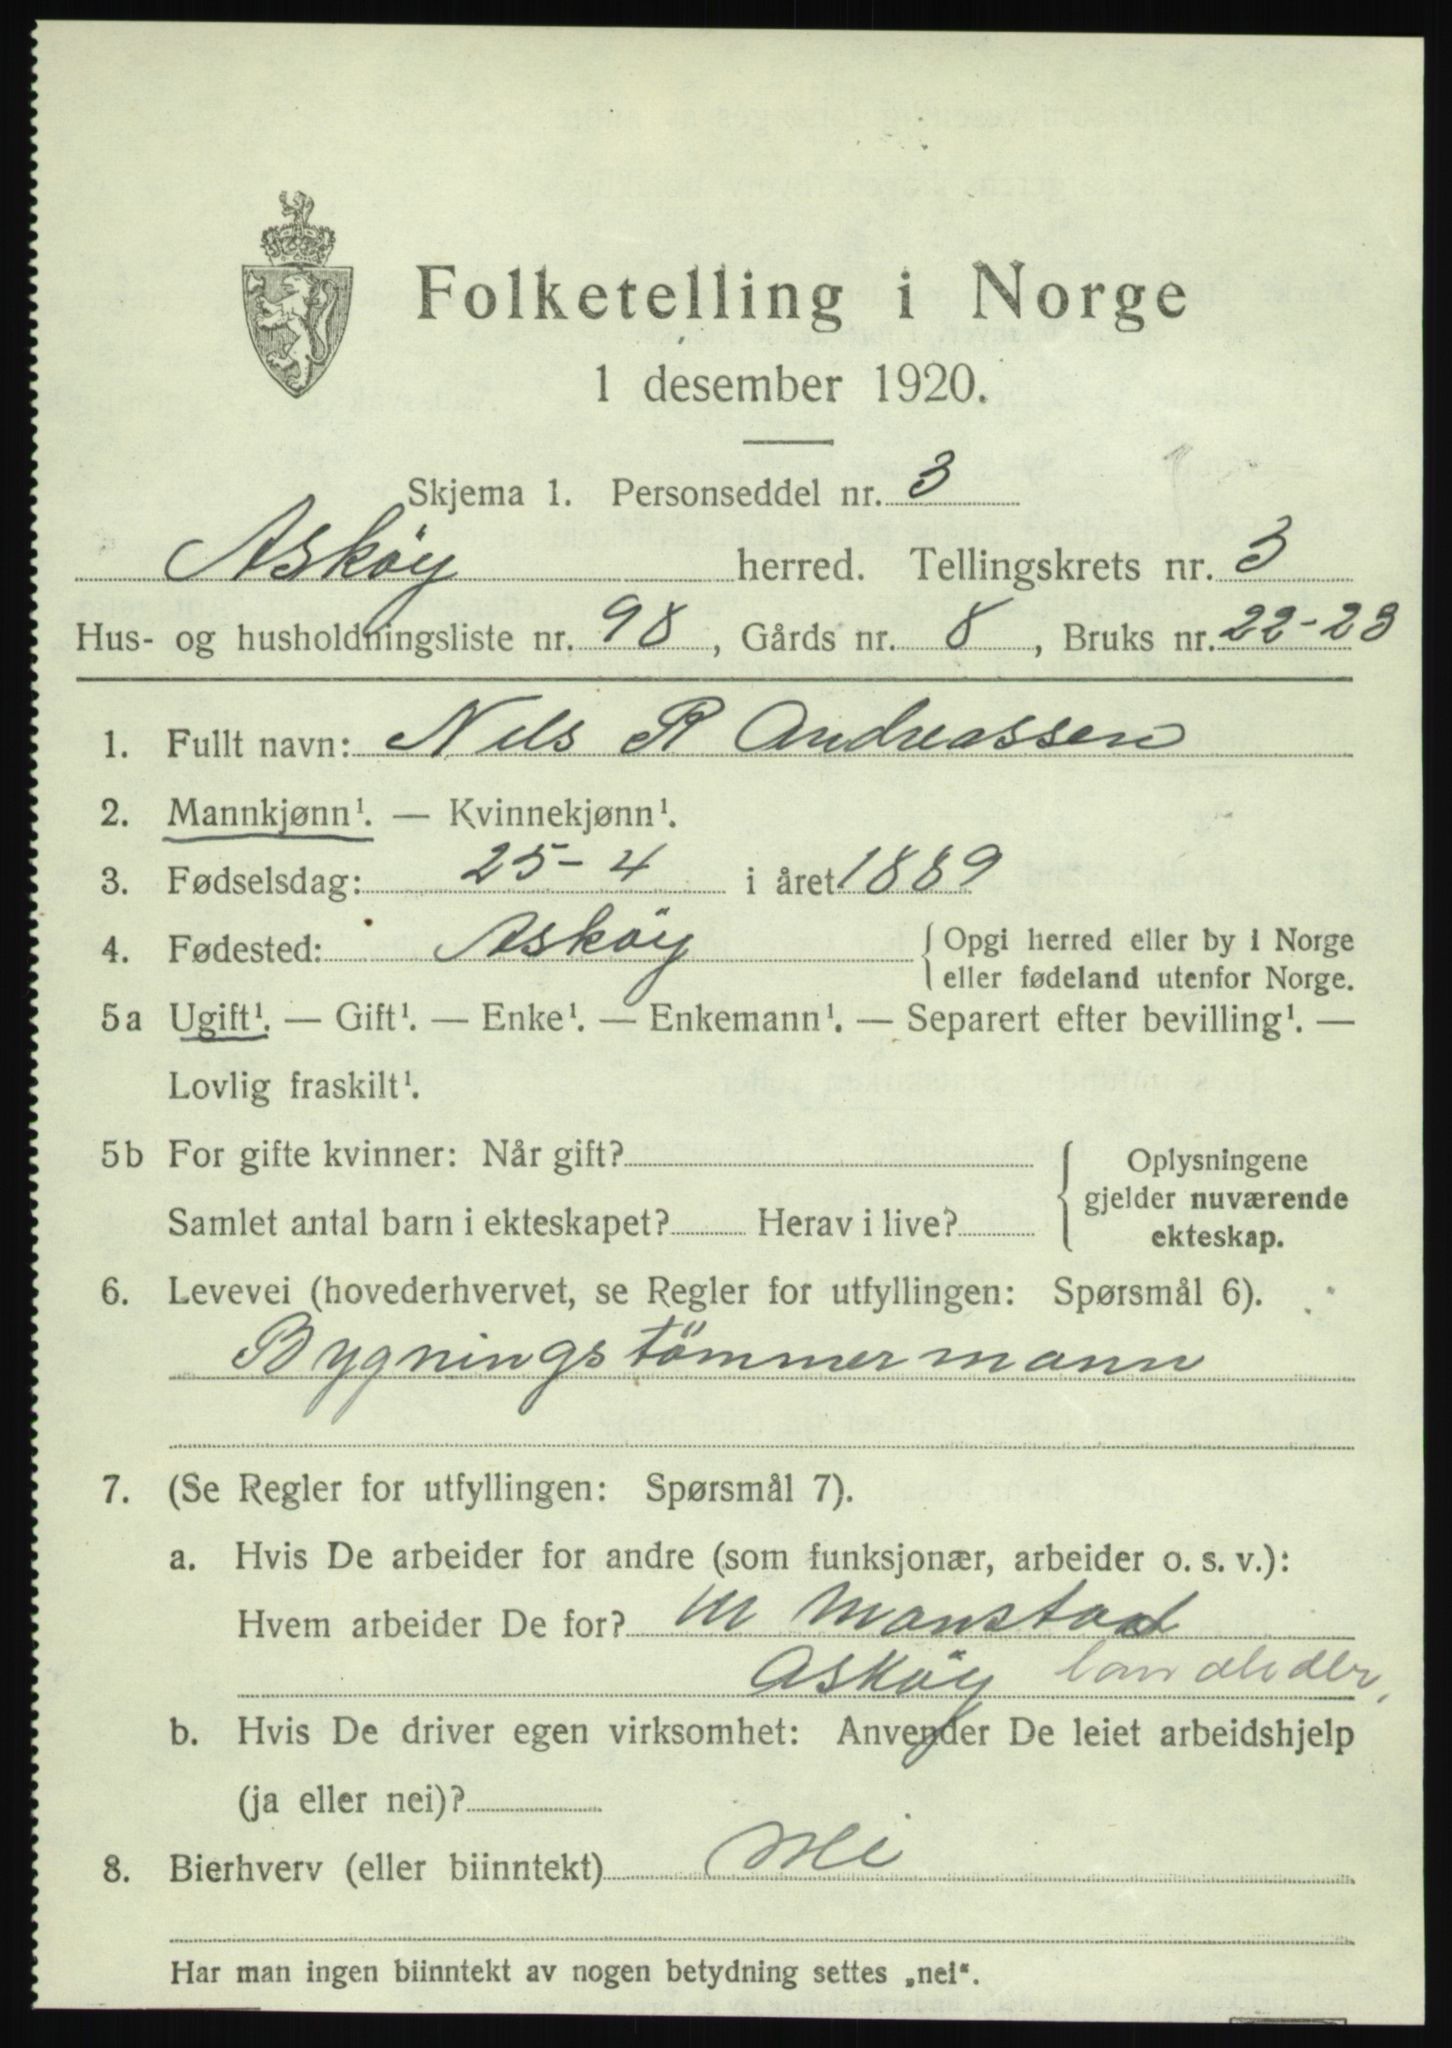 Folketelling i Norge
1 desember 1920.
Skjema 1. Personseddel nr. 3
Asköy herred. Tellingskrets nr. 3
Hus- og husholdningsliste nr. 98, Gårds nr. 8, Bruks nr. 22-23
1. Fullt navn: Nels R Andreassen
2. Mannkjønn¹. — Kvinnekjønn¹.
3. Fødselsdag: 25-4 i året 1889
4. Fødested: Asköy { Opgi herred eller by i Norge
eller fødeland utenfor Norge.
5a Ugift¹. — Gift¹. — Enke¹. — Enkemann¹. — Separert efter bevilling¹. —
Lovlig fraskilt¹.
5b For gifte kvinner: Når gift?
Samlet antal barn i ekteskapet? Herav i live?
{ Oplysningene
gjelder nuværende
ekteskap.
6. Levevei (hovederhvervet, se Regler for utfyllingen: Spørsmål 6).
Bygningstömmermann
7. (Se Regler for utfyllingen: Spørsmål 7).
a. Hvis De arbeider for andre (som funksjonær, arbeider o. s. v.):
Hvem arbeider De for? M Monstad
Asköy
b. Hvis De driver egen virksomhet: Anvender De leiet arbeidshjelp
(ja eller nei)?
8. Bierhverv (eller biinntekt) Nei
Har man ingen biinntekt av nogen betydning settes „nei“.